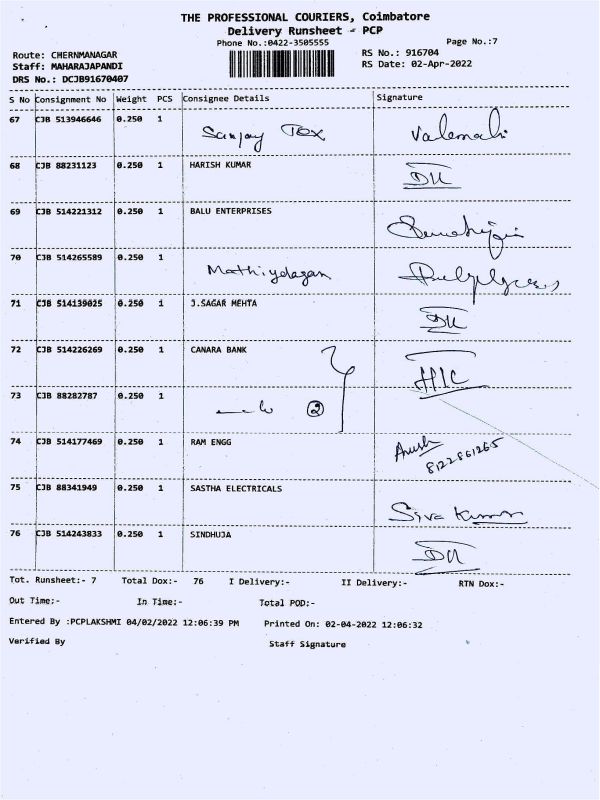 THE PROFESSIONAL COURIERS, Coimbatore
Delivery Runsheet - PCP
Phone No.:0422-3505555
Page No.:7
Route: CHERNMANAGAR
RS No.: 916704
Staff: MAHARAJAPANDI
RS Date: 02-Apr-2022
DRS No.: DCJB91670407
S No Consignment No Weight PCS Consignee Details Signature
67 CJB 513946646 0.250 1 Sanjay Tex
68 CJB 88231123 0.250 1 HARISH KUMAR
69 CJB 514221312 0.250 1 BALU ENTERPRISES
70 CJB 514265589 0.250 1 Mathiydagan
71 CJB 514139025 0.250 1 J.SAGAR MEHTA
72 CJB 514226269 0.250 1 CANARA BANK
73 CJB 88282787 0.250 1 2
74 CJB 514177469 0.250 1 RAM ENGG Anush
8122861265
75 CJB 88341949 0.250 1 SASTHA ELECTRICALS Siva Kumar
76 CJB 514243833 0.250 1 SINDHUJA
Tot. Runsheet:- 7 Total Dox:- 76 I Delivery:- II Delivery:- RTN Dox:-
Out Time:- In Time:- Total POD:-
Entered By :PCPLAKSHMI 04/02/2022 12:06:39 PM Printed On: 02-04-2022 12:06:32
Verified By Staff Signature